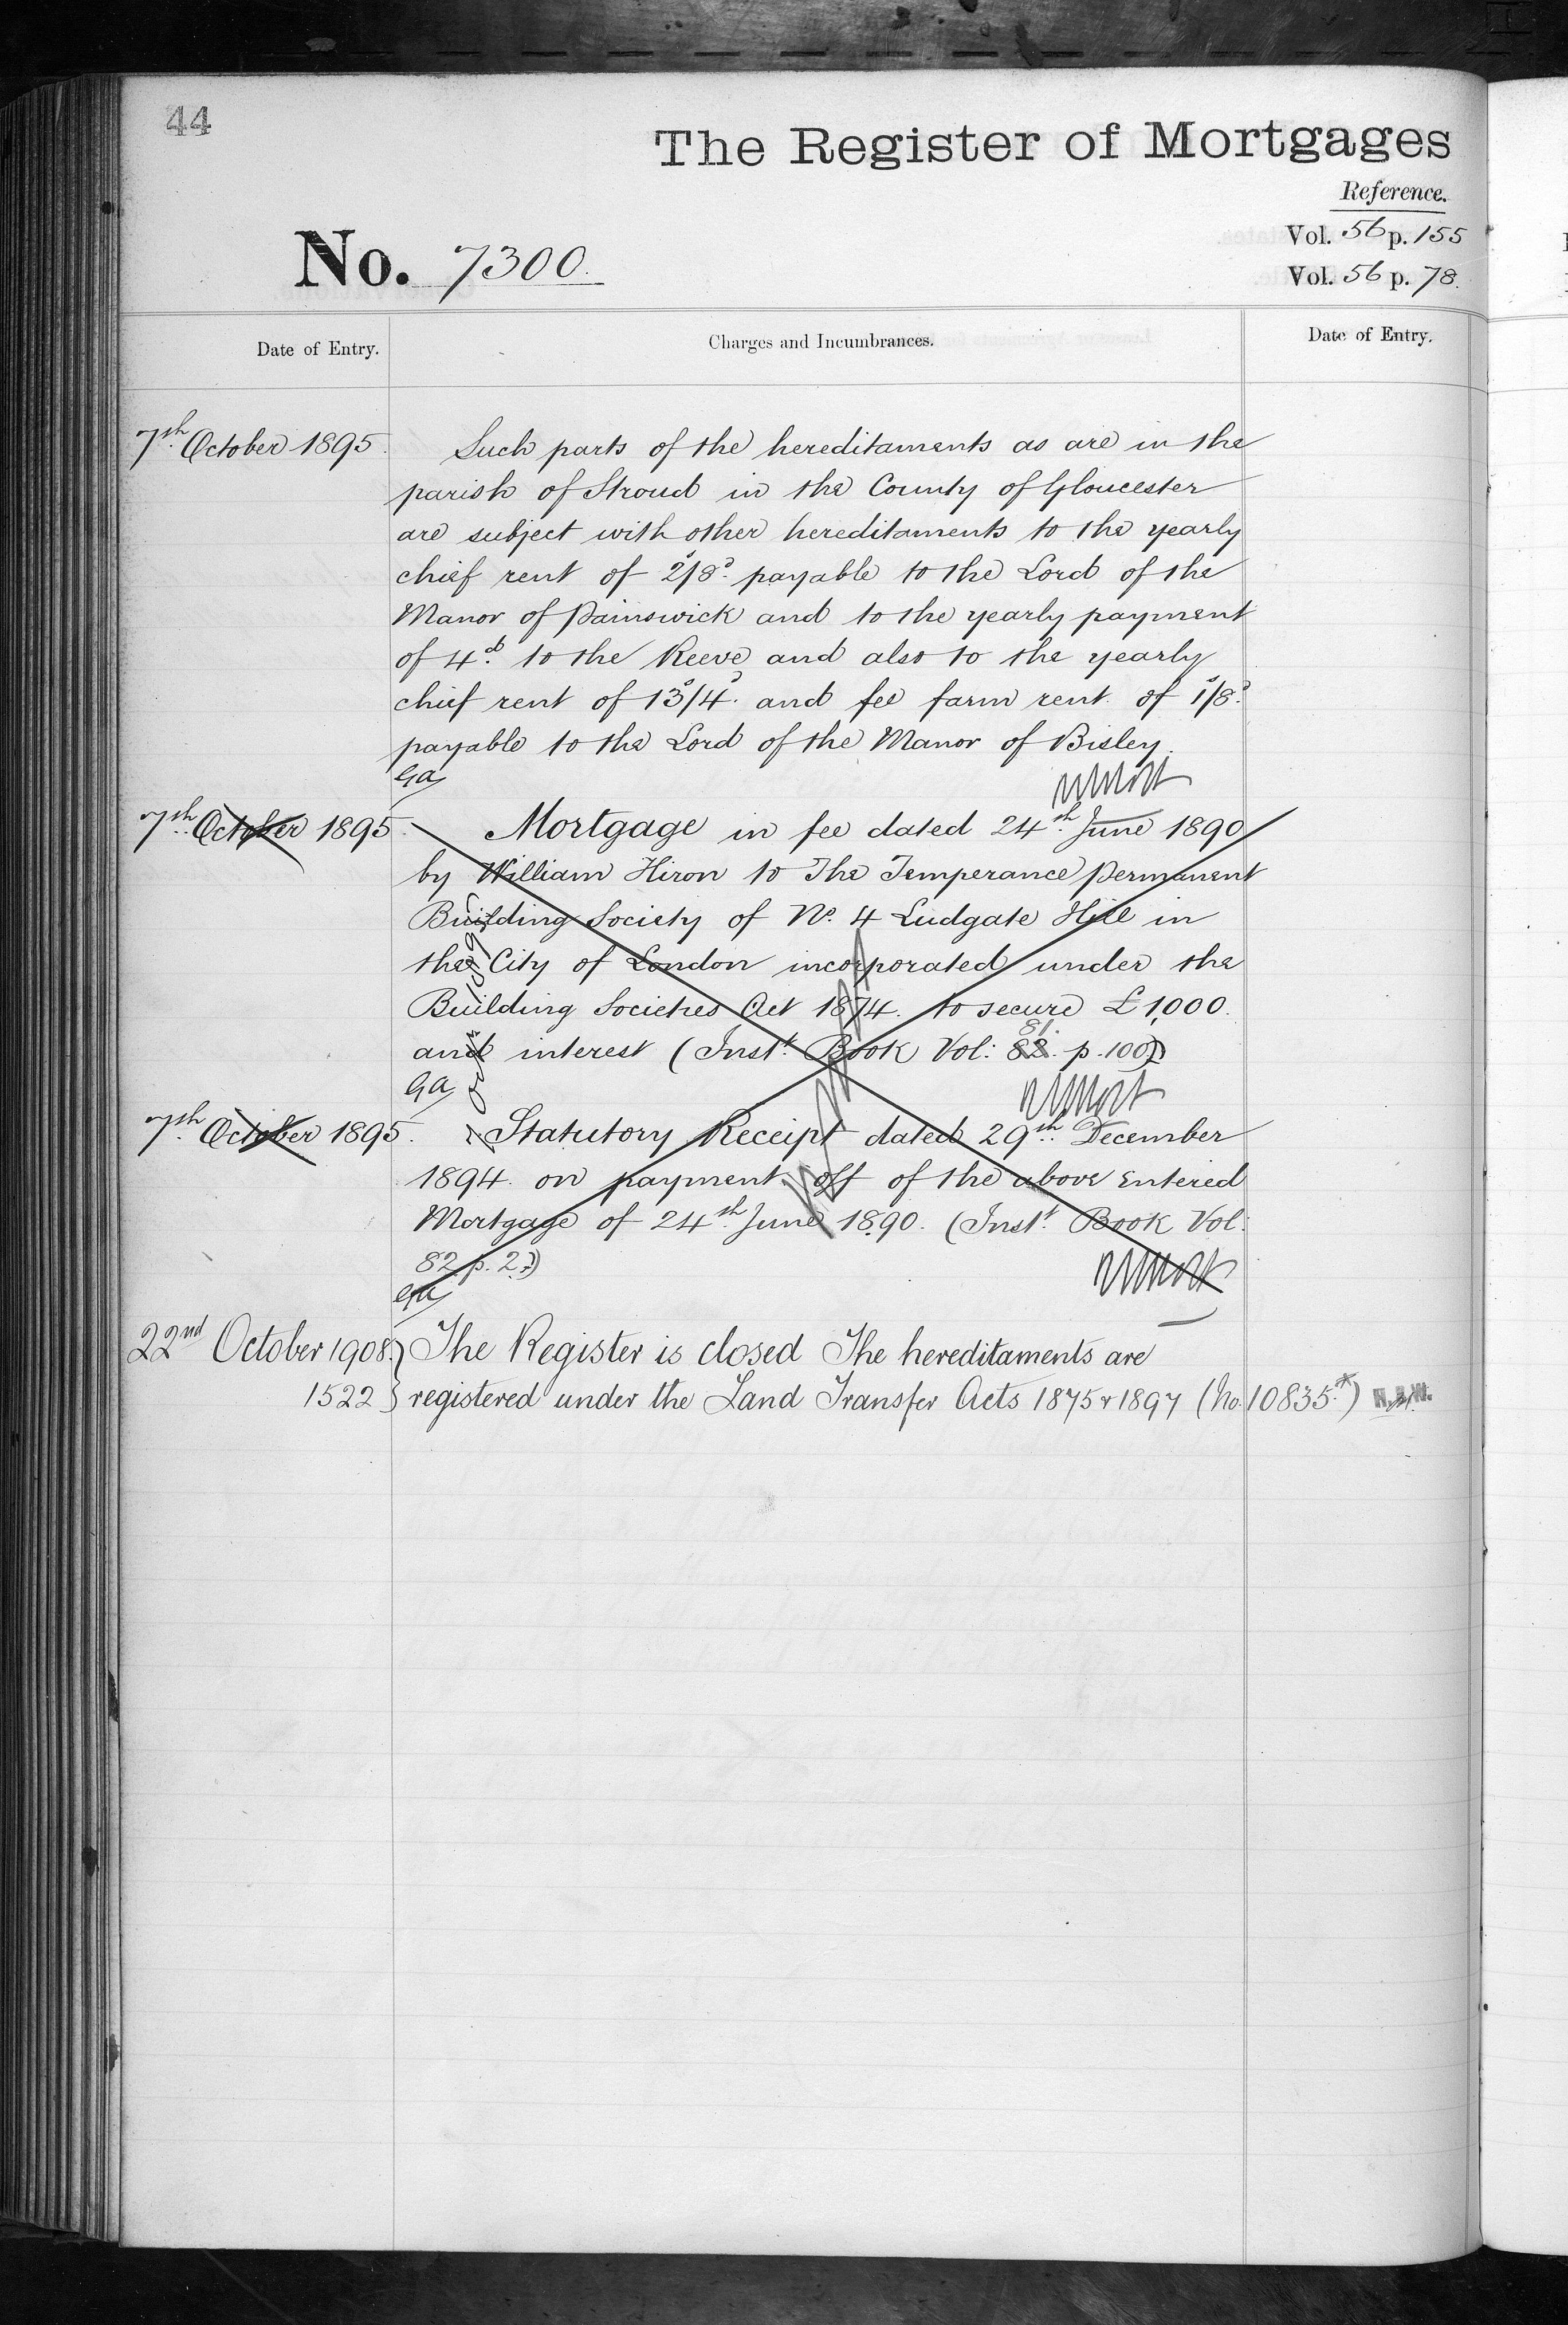 44
The Register of Mortgages
Reference.
Vol. 56 p. 155
No. 7300.
Vol. 56 p. 78.
Date of Entry.
Charges and Incumbrances.
Date of Entry.
7th October 1895. Such parts of the hereditaments as are in the
parish of Stroud in the County of Gloucester
are subject with other hereditaments to the yearly
chief rent of 2s/8d payable to the Lord of the
Manor of Painswick and to the yearly payment
of 4d. to the Reeve and also to the yearly
chief rent of 13s/4d. and fee farm rent of 1s/8d.
payable to the Lord of the Manor of Bisley.
GA
7th October 1895. Mortgage in fee dated 24th June 1890
by William Hiron to The Temperance Permanent
Building Society of No. 4 Ludgate Hill in
the City of London incorporated under the
Building Societies Act 1874. to secure £1,000.
81.
and interest (Inst. Book Vol: 82. p. 100)
GA
7th October 1895. Statutory Receipt dated 29th December
1894 on payment off of the above entered
Mortgage of 24th June 1890. (Inst. Book Vol:
82 p. 2.)
GA
22nd October 1908. } The Register is closed The hereditaments are
1522 } registered under the Land Transfer Acts 1875 & 1897 (No. 10835*)